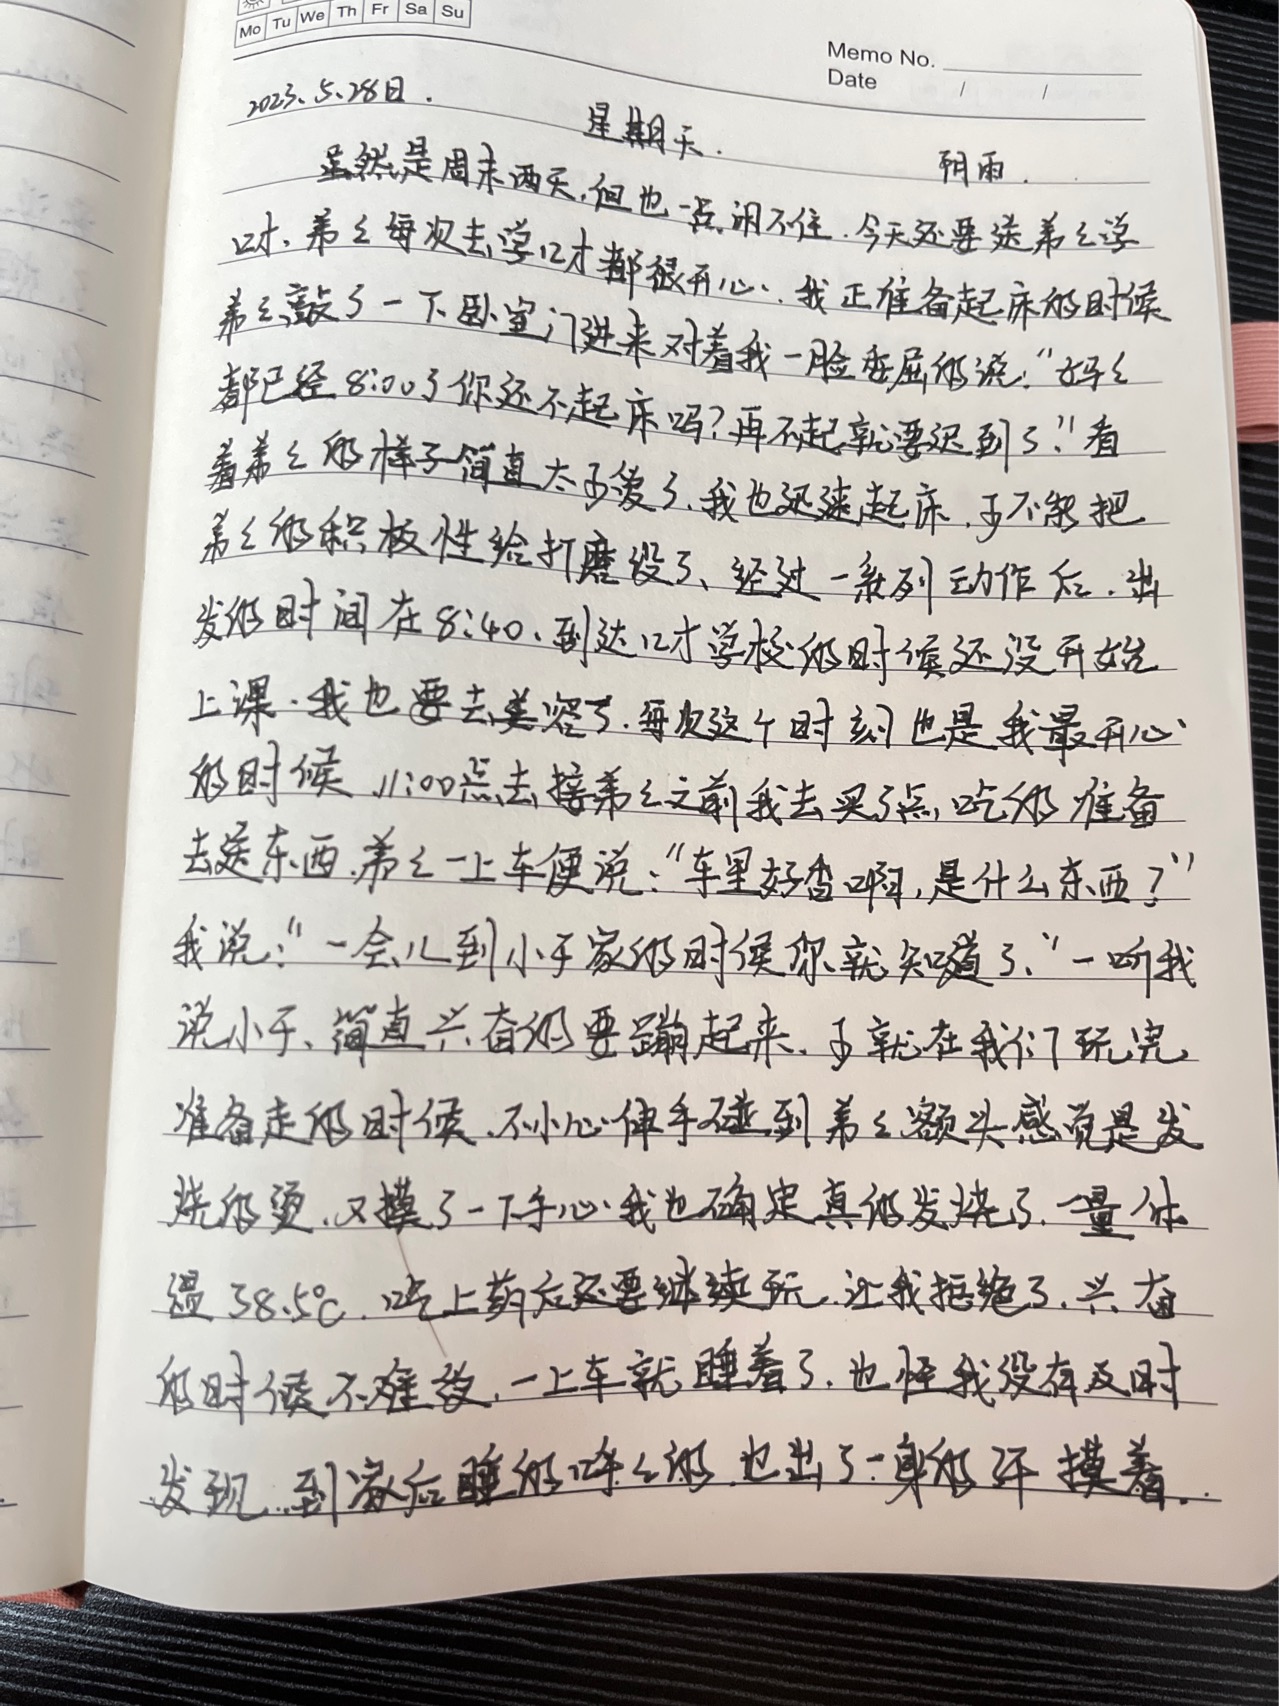 Mo Tu We Th Fr Sa Su
Memo No.
Date / /
2023.5.28日.
星期天. 阴雨.
虽然是周末两天,但也一点闲不住.今天还要送弟弟学
口才、弟弟每次去学口才都很开心、我正准备起床的时候
弟弟敲了一下卧室门进来对着我一脸委屈的说:“妈妈
都已经8:00了你还不起床吗?再不起就要迟到了!”看
着弟弟的样子简直太可爱了、我也迅速起床.可不能把
弟弟的积极性给打磨没了、经过一系列动作后.出
发的时间在8:40、到达口才学校的时候还没开始
上课.我也要去美容了.每次这个时刻也是我最开心
的时候 11:00点去接弟弟之前我去买了点吃的准备
去送东西.弟弟一上车便说:“车里好香啊,是什么东西?”
我说:“一会儿到小于家的时候你就知道了、”一听我
说小于、简直兴奋的要蹦起来.可就在我们玩完
准备走的时候.不小心伸手碰到弟弟额头感觉是发
烧的烫.又摸了一下手心.我也确定真的发烧了.一量体
温38.5℃.吃上药后还要继续玩.让我拒绝了.兴奋
的时候不难受,一上车就睡着了.也怪我没有及时
发现..到家后睡的哼哼的.也出了一身的汗摸着..